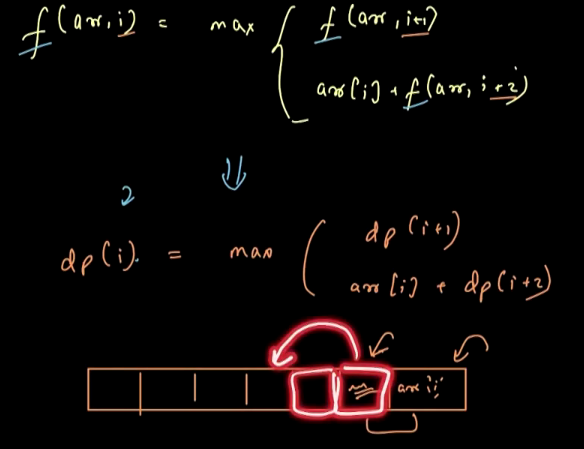 f(arr, i) = max { f(arr, i+1)
arr[i] + f(arr, i+2)
2
dp(i) = max ( dp(i+1)
arr[i] + dp(i+2)
arr[i]